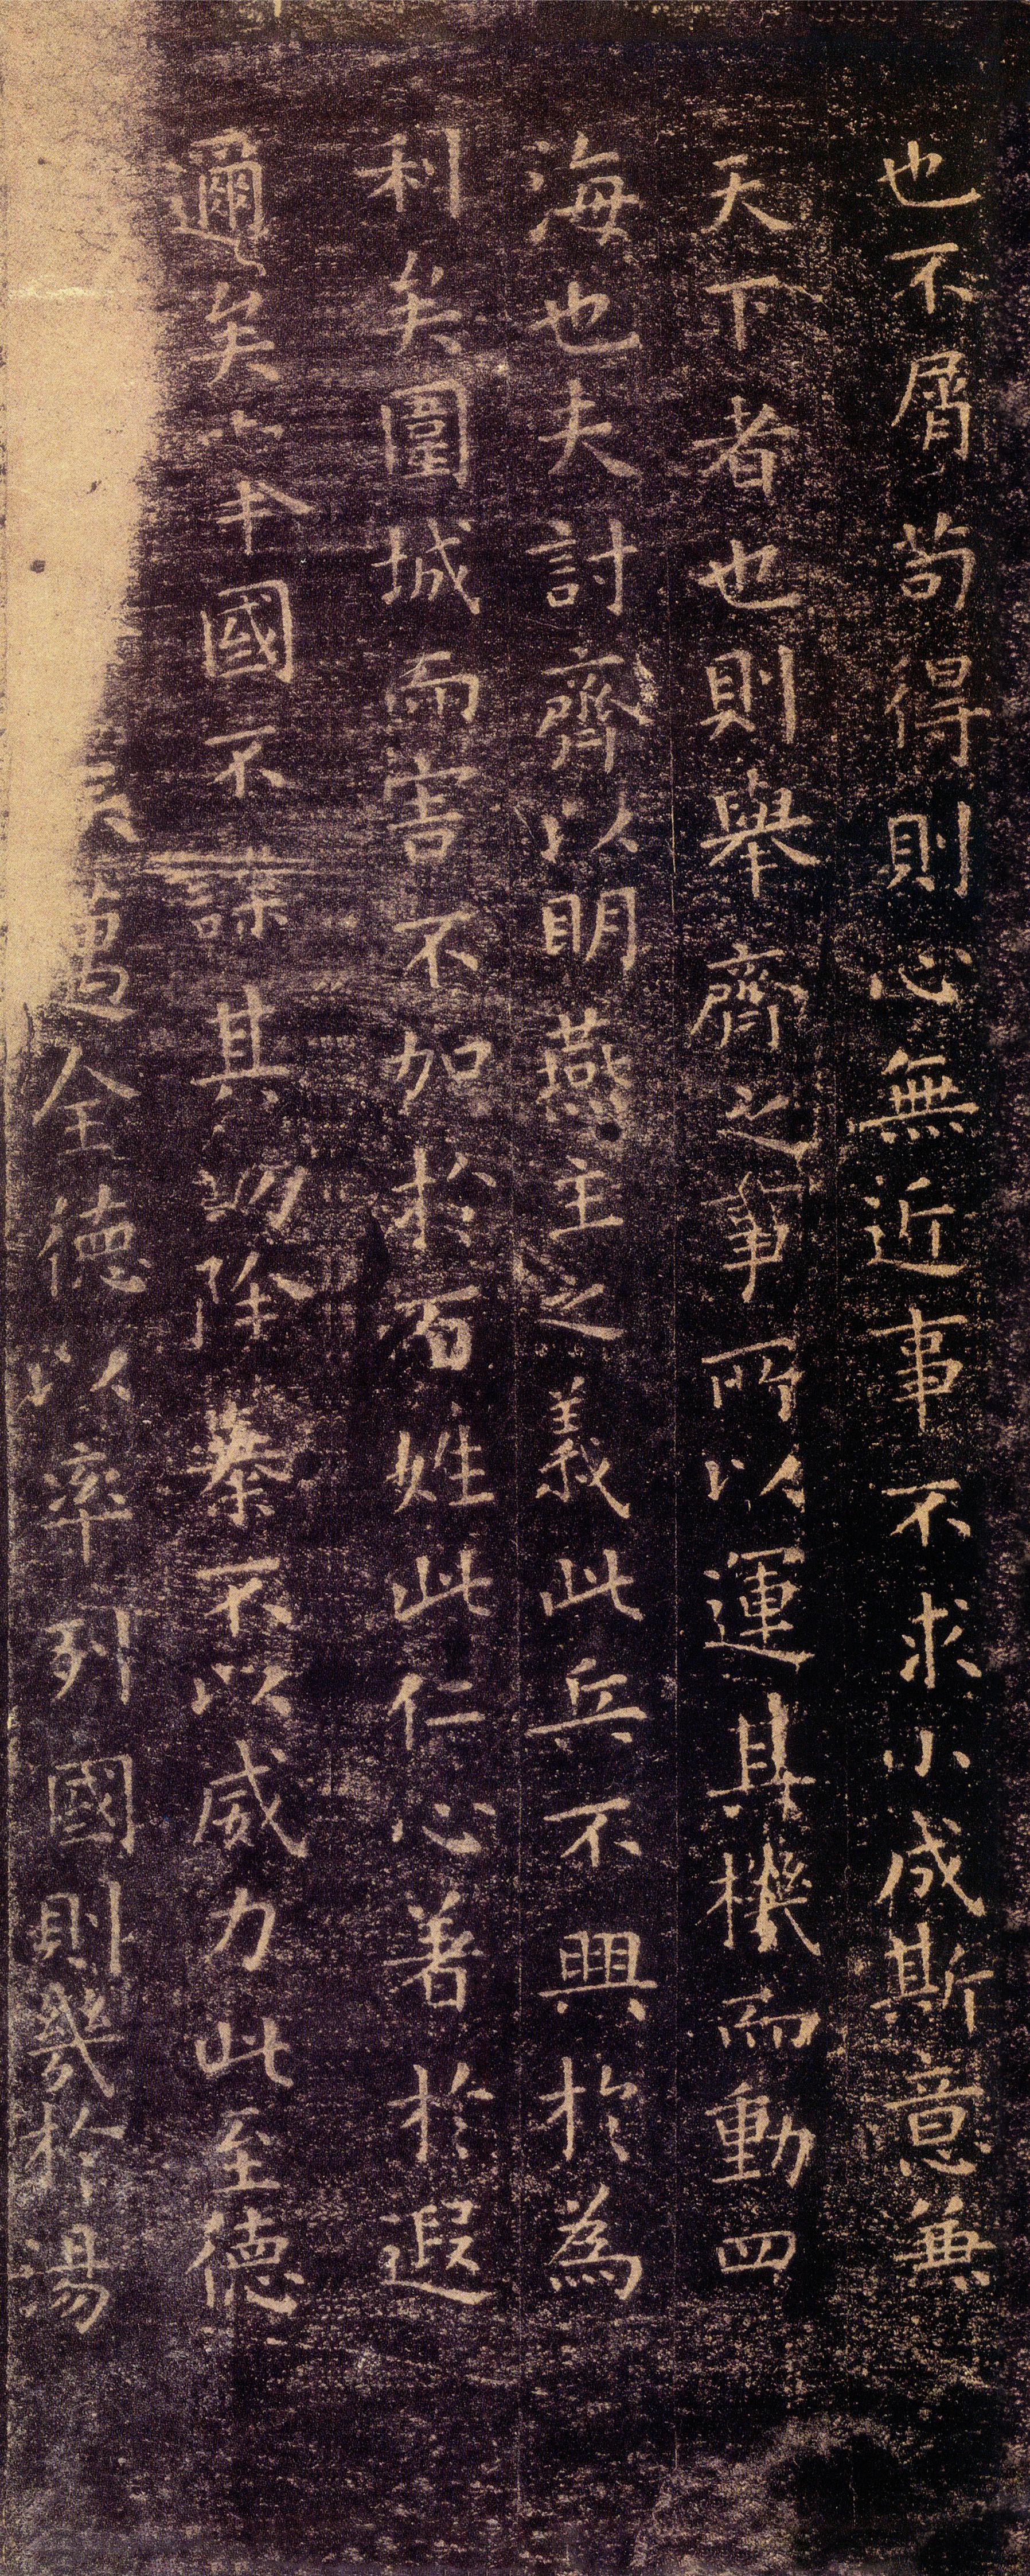 也不屑苟得則心無近事不求小成斯意兼
天下者也則舉齊之事所以運其機而動四
海也夫討齊以明燕主之義此兵不興於為
利矣圍城而害不加於百姓此仁心著於遐
邇矣舉國不謀其功除暴不以威力此至德
矣邁全德以率列國則幾於湯